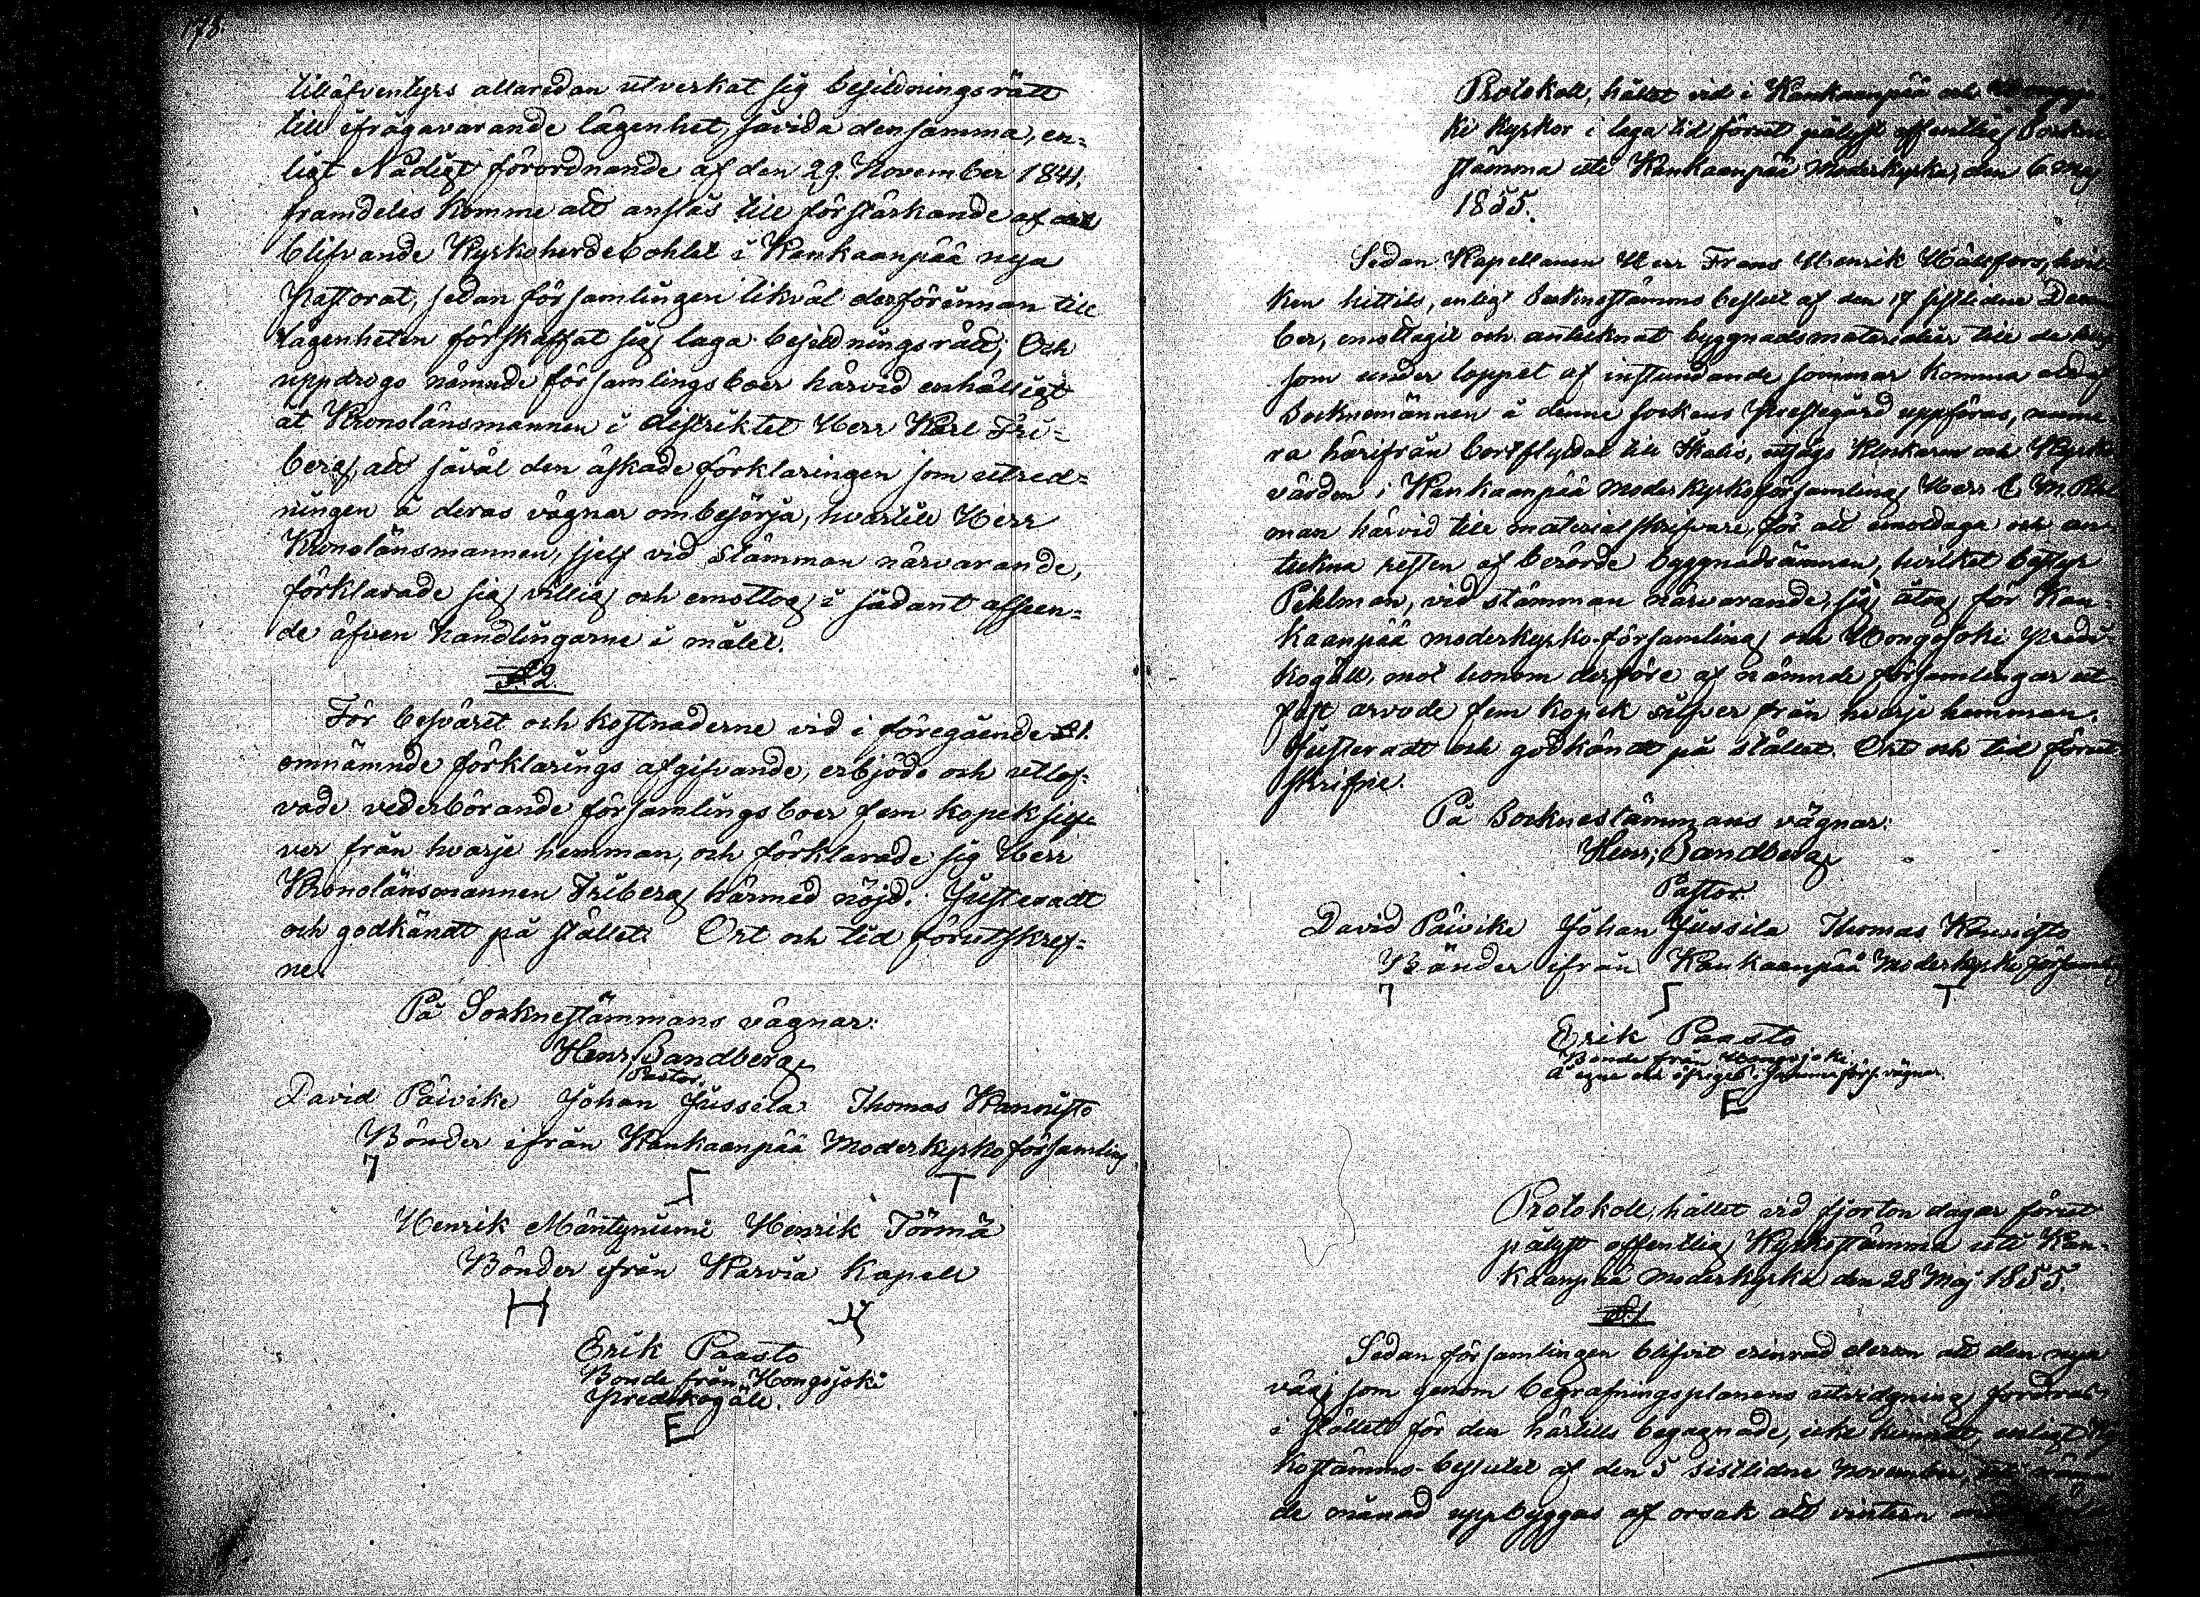 178.
tilläfventyrs allaredan utverkat sig besittningsrätt
till ifrågavarande lägenhet, såvida densamma, en-
ligt Nådigt förordnande af den 29 November 1841,
framdeles komme att anslås till förstärkande af det
blifvande Kyrkoherdebohlet i Kankaanpää nya
Pastorat, sedan församlingen likväl derförinnan till
lägenheten förskaffat sig laga besittningsrätt; Och
uppdrogo nämnde församlingsboer härvid enhälligt
åt Kronolänsmannen i distriktet Herr Karl Fri-
berg, att såväl den äskade förklaringen som utred-
ningen å deras vägnar ombesörja, hvartill Herr
Kronolänsmannen, sjelf vid stämman närvarande,
förklarade sig villig och emottog i sådant afseen-
de äfven handlingarne i målet.
§. 2.
För besväret och kostnaderne vid i föregående §1.
omnämnde förklarings afgifvande, erbjödo och utlof-
vade vederbörande församlingsboer fem kopek silf-
ver från hvarje hemman, och förklarade sig Herr
Kronolänsmannen Friberg härmed nöjd. Justeradt
och godkändt på stället. Ort och tid förutskref-
ne.
På Socknestämmans vägnar:
Henr. Sandberg
Pastor.
David Päivike Johan Jussila Thomas Kannisto
Bönder ifrån Kankaanpää Moderkyrkoförsamling
Henrik Mäntyniemi Henrik Törmä
Bönder ifrån Karvia Kapell
H
Erik Paasto
Bonde från Hongojoki
Predikogäll.
E
Protokoll, hållet vid i Kankaanpää och Hongojo-
ki kyrkor i laga tid förut pålyst offentlig Sockne
stämma uti Kankaanpää Moderkyrka, den 6 Maj
1855.
Sedan Kapellanen Herr Frans Henrik hvil-
ken hittils, enligt Socknestämmo beslut af den 17 sistlidne Decem
ber, emottagit och antecknat byggnadsmaterialier till de hus
som under loppet af instundande sommar komma att af
Socknemännen å denne sockens Prestegård uppföras, nume-
ra härifrån bortflyttat till Ikalis, utsågs Klockaren och Kyrko
värden i Kankaanpää moderkyrkoförsamling Herr Pehl
man härvid till materialskrifvare, för att emottaga och an-
teckna resten af berörde byggnadsämnen, hvilket bestyr
Pehlman, vid stämman närvarande, sig åtog för Kan-
kaanpää moderkyrko-församling och Hongojoki Predi-
kogäll, mot honom derföre af nämnde församlingar ut-
fäst arvode fem kopek silfver från hvarje hemman.
Justeradt och godkändt på stället. Ort och tid förut
skrifne.
På Socknestämmans vägnar:
Henr. Sandberg
Pastor.
David Päivike Johan Jussila Thomas Kannisto
Bönder ifrån Kankaanpää Moderkyrko församl
T
Erik Paasto
Bonde från Hongojoki
å egne och öfriges i samma förs. vägnar.
E
Protokoll, hållet vid fjorton dagar förut
pålyst offentlig Kyrkostämma uti Kan-
kaanpää Moderkyrka den 28 Maj 1855.
§.1
Sedan församlingen blifvit erinrad derom att den nya
väg, som genom begrafningsplanens utvidgning fordras
i stället för den härtills begagnade, icke hunnit, enligt Kyr
kostämmo-beslutet af den 5 sistlidne November, uti nämn
de månad uppbyggas af orsak att vintern